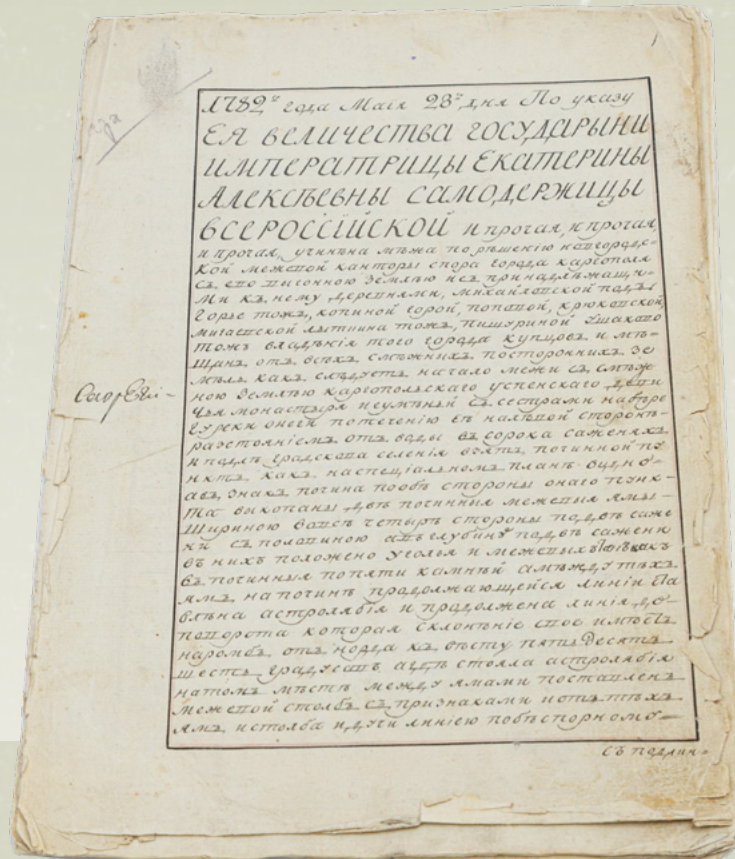 1782го года Маія 23го дня По указу
ЕЯ ВЕЛИЧЕСТВА ГОСУДАРЫНИ
ИМПЕРАТРИЦЫ ЕКАТЕРИНЫ
АЛЕКСѢЕВНЫ САМОДЕРЖИЦЫ
ВСЕРОССІЙСКОЙ и прочая, и прочая,
и прочая, учинена мѣжа по рѣшенію новгородс-
кой межевой канторы спора города каргополя
съ его выгонною землью и съ принадлѣжащи-
ми къ нему деревнями, Михайловской подъ
горье тожъ, копиной горой, поповой, крюковской
мигаевской лытнина тожъ, пищуриной Ушаково
тожъ владѣнія того города купцовъ и мѣ-
щанъ отъ всѣхъ смѣжныхъ постороннихъ зе
мѣль какъ слѣдуетъ начало межи съ смѣж
ною землью каргопольскаго успенскаго дѣви
чья монастыря игуменьи съ сестрами на бере
гу реки онеги потеченію ея на левой сторонѣ
разстояніемъ отъ воды въ сорока саженяхъ
и подлѣ градскова селенія взятъ починной пу
нктъ какъ наспеціальномъ планѣ
знакъ почина пообѣ стороны онаго пунк-
та выкопаны двѣ починныя межевыя ямы
шириною вовсѣ четырѣ стороны подвѣ саже
ни съ половиною аглубину подвѣ сажени
въ нихъ положено уголья и какъ
въ починныя попяти камней амѣжду тѣхъ
ямъ напочинѣ продолжающейся линіи
влѣна астролябія и продолжена линія до
поворота которая склонѣніе свое имѣетъ
наромбъ отъ норда къ весту пять десятъ
шесть градусовъ агдѣ стояла астролябія
натомъ мѣстѣ между ямами поставленъ
межевой столбъ съ признаками иотъ тѣхъ
ямъ истолба идучи линіею побѣспорному
съ подлин-